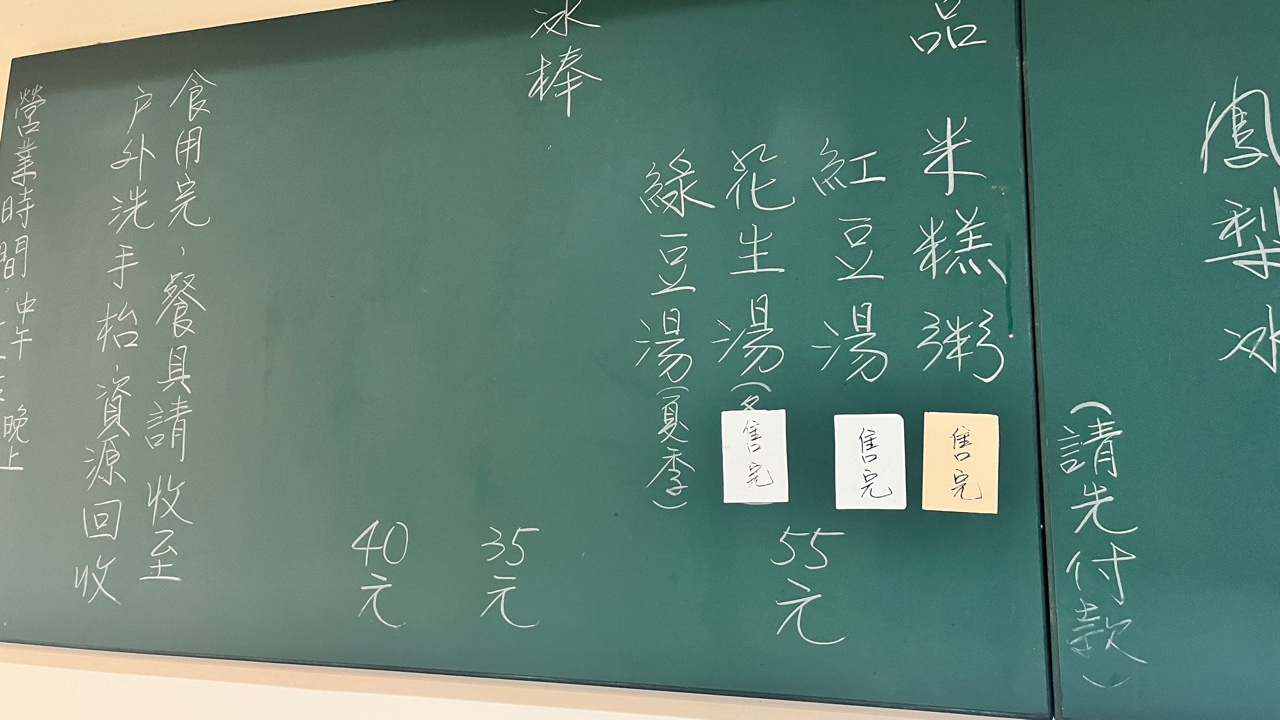 鳳梨冰
(請先付款)
品
米糕粥
售完
紅豆湯
售完
花生湯(冬
售完
綠豆湯(夏季)
55元
冰棒
35元
40元
食用完、餐具請收至
戶外洗手枱,資源回收
營業時間 中午 晚上
時間: